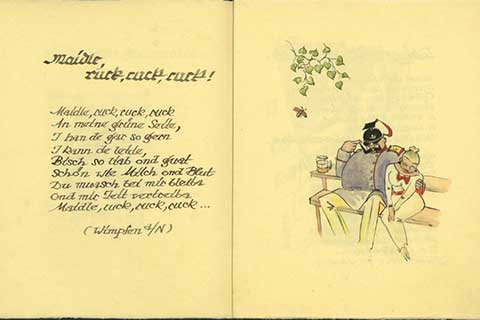 Maidle,
ruck, ruck, ruck!
Maidle, ruck, ruck, ruck
An meine grüne Seite,
I han de gar so gern
I kann de leide,
Bisch so lieb ond guat
Schön wie Milch ond Blut
Du muasch bei mir bleiba
Ond mir Zeit vertreiba
Maidle, ruck, ruck, ruck ...
(Wimpfen a/N)